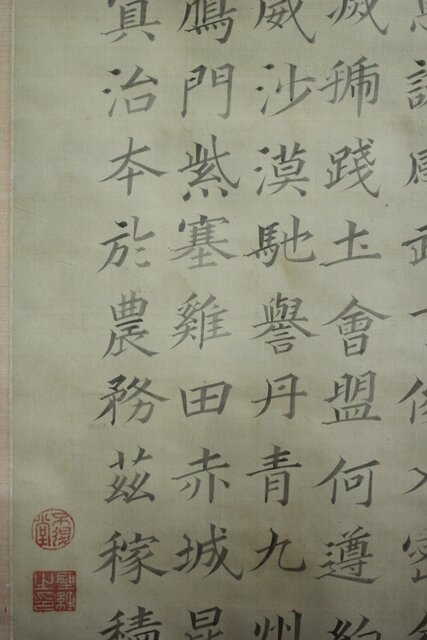 滅虢踐土會盟何遵約
威沙漠馳譽丹青九州
鴈門紫塞雞田赤城昆
冥治本於農務茲稼穡